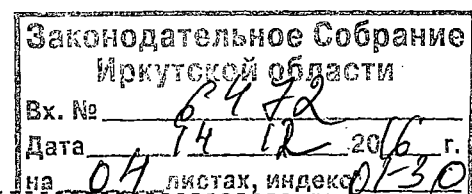 Законодательное Собрание
Иркутской области
Вх. № 6472
Дата 14 12 2016 г.
на 04 листах, индекс 01-30